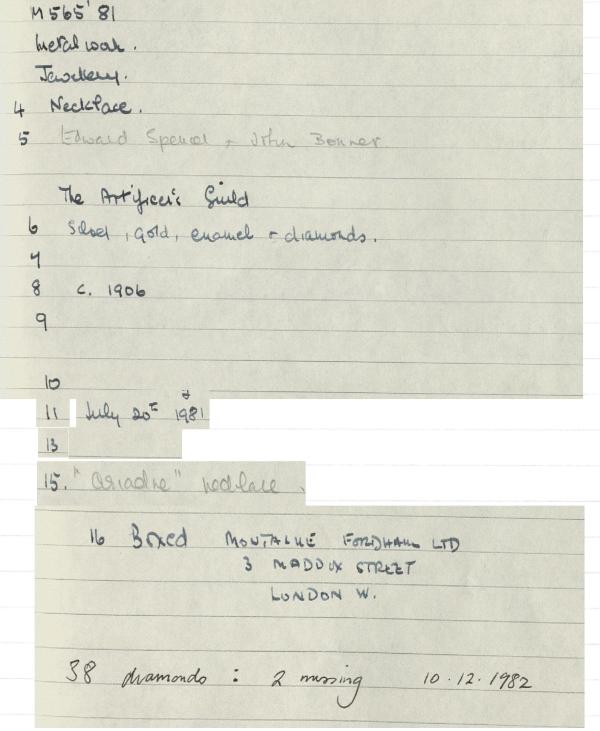 M565'81
Metal work.
Jewellery.
4 Necklace.
5 Edward Spencer + John Bonner
The Artificer's Guild
6 Silver, gold, enamel + diamonds.
7
8 c. 1906
9
10
11 July 20th 1981
13
15. "Ariadne" necklace.
16 Boxed MONTAGUE FORDHAM LTD
3 MADDOX STREET
LONDON W.
38 diamonds : 2 missing 10.12.1982